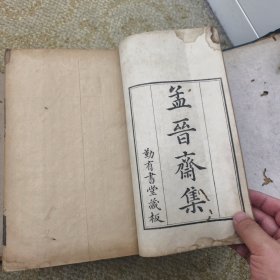 孟晉齋集
勤有書堂藏板